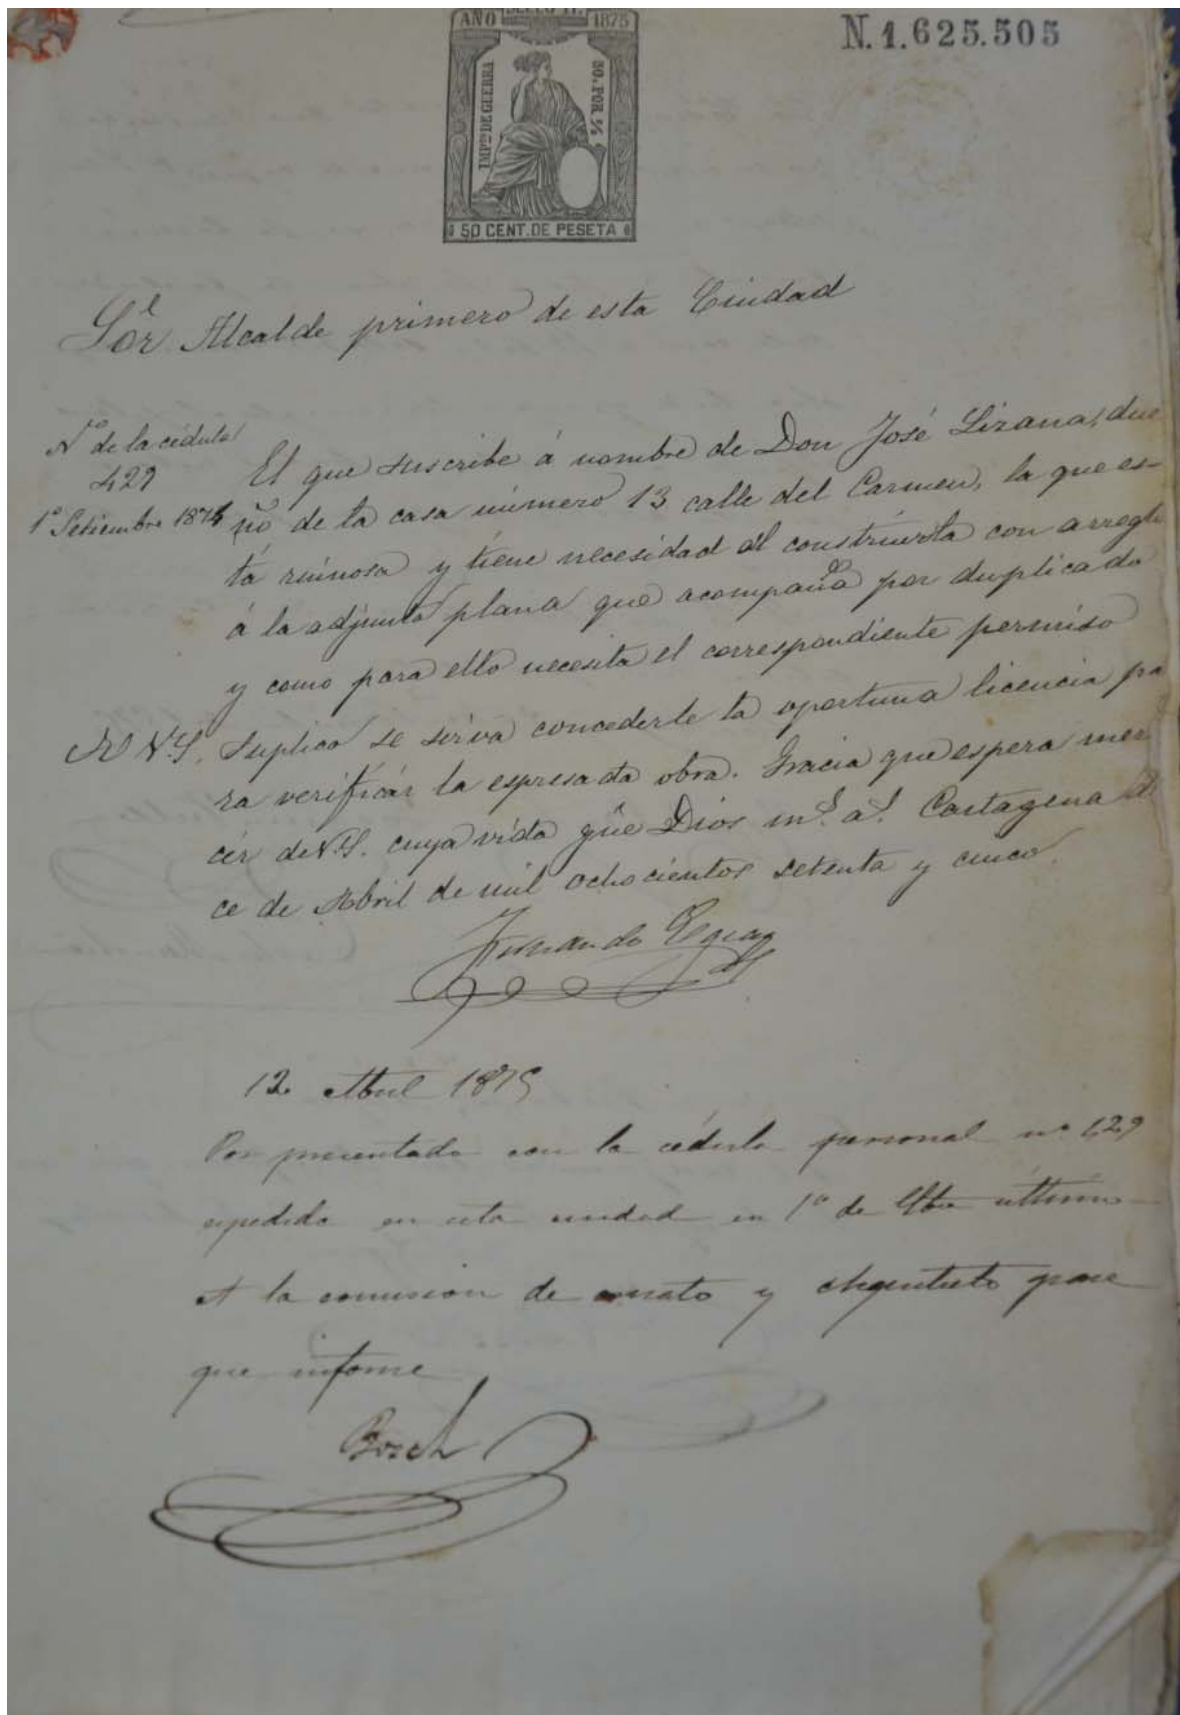 SELLO 11.º
AÑO 1875
N. 1.625.505
IMP.to DE GUERRA
50. POR %
50 CENT. DE PESETA
Sor Alcalde primero de esta Ciudad
Nº de la cédula
429
1º Setiembre 1874
El que suscribe á nombre de Don José Lizana, due
ño de la casa número 13 calle del Carmen, la que es-
tá ruinosa y tiene necesidad de construirla con arreglo
á la adjunta plana que acompaña por duplicado
y como para ello necesita el correspondiente permiso
A V.S. Suplica se sirva concederle la oportuna licencia pa
ra verificar la espresada obra. Gracia que espera mere
cer de V.S. cuya vida güe Dios m.s a.s Cartagena do
ce de Abril de mil ochocientos setenta y cinco.
Fernando Egea
12 Abril 1875
Por presentada con la cédula personal nº 429
espedida en esta ciudad en 1º de 9bre último
A la comision de ornato y Arquitecto para
que informe
Bosch